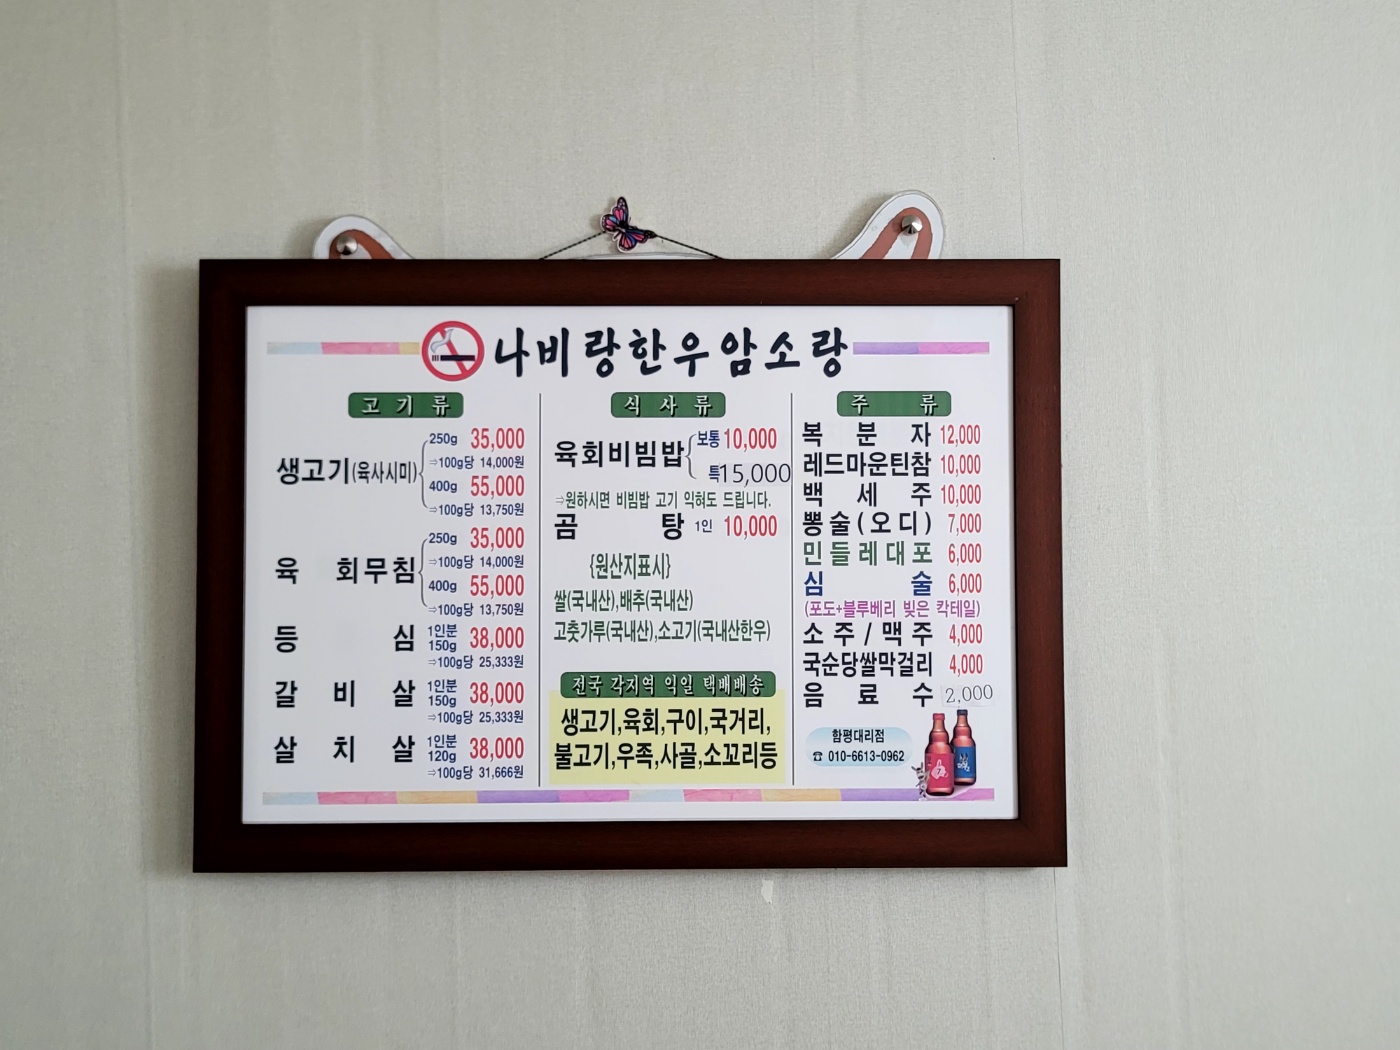 나비랑한우암소랑
고기류
생고기(육사시미) 250g 35,000
⇒100g당 14,000원
400g 55,000
⇒100g당 13,750원
육회무침 250g 35,000
⇒100g당 14,000원
400g 55,000
⇒100g당 13,750원
등심 1인분 150g 38,000
⇒100g당 25,333원
갈비살 1인분 150g 38,000
⇒100g당 25,333원
살치살 1인분 120g 38,000
⇒100g당 31,666원
식사류
육회비빔밥 보통 10,000
특 15,000
⇒원하시면 비빔밥 고기 익혀도 드립니다.
곰탕 1인 10,000
{원산지표시}
쌀(국내산),배추(국내산)
고춧가루(국내산),소고기(국내산한우)
전국 각지역 익일 택배배송
생고기,육회,구이,국거리,
불고기,우족,사골,소꼬리등
주류
복분자 12,000
레드마운틴참 10,000
백세주 10,000
뽕술(오디) 7,000
민들레대포 6,000
심술 6,000
(포도+블루베리 빚은 칵테일)
소주/맥주 4,000
국순당쌀막걸리 4,000
음료수 2,000
함평대리점
☎ 010-6613-0962